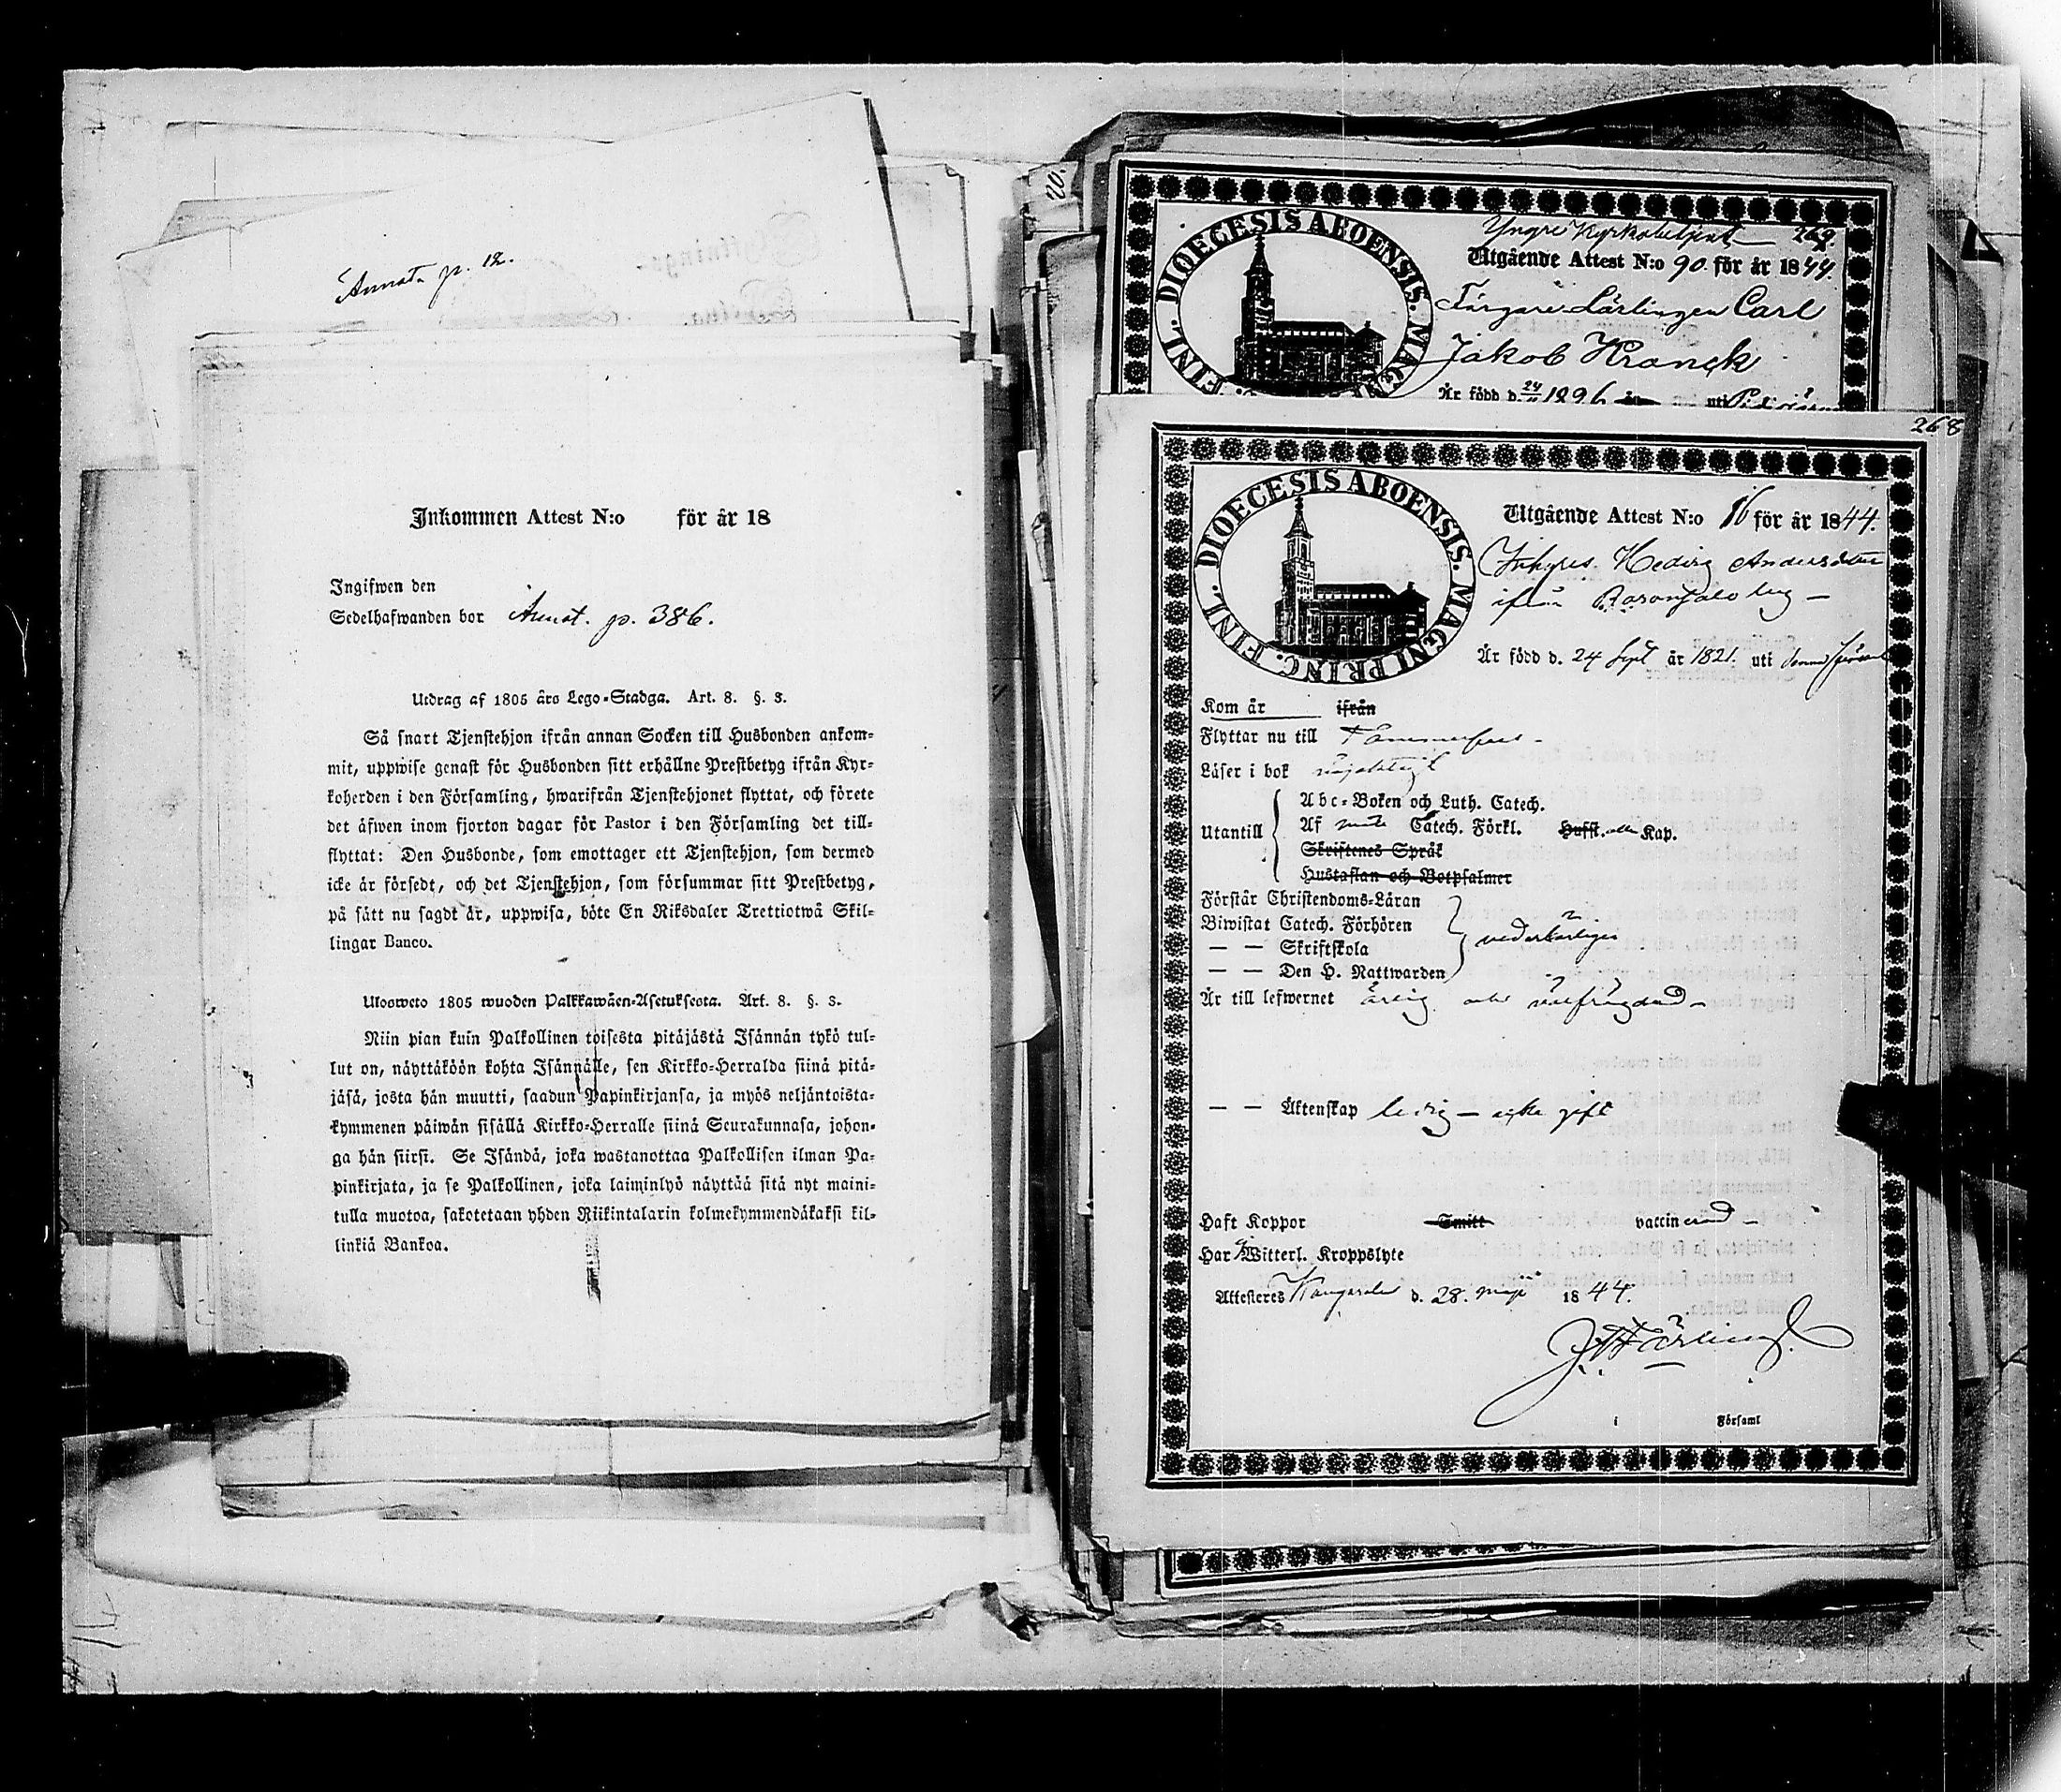 Annot. p. 12.
Inkommen Attest N:o för år 18
Ingifwen den
Sedelhafwanden bor Annot. p. 386.
Utdrag af 1805 års Lego-Stadga. Art. 8. §. 3.
Så snart Tjenstehjon ifrån annan Socken till Husbonden ankom-
mit, uppwise genast för Husbonden sitt erhållne Prestbetyg ifrån Kyr-
koherden i den Församling, hwarifrån Tjenstehjonet flyttat, och förete
det äfwen inom fjorton dagar för Pastor i den Församling det till-
flyttat: Den Husbonde, som emottager ett Tjenstehjon, som dermed
icke är försedt, och det Tjenstehjon, som försummar sitt Prestbetyg,
på sätt nu sagdt är, uppwisa, böte En Riksdaler Trettiotwå Skil-
lingar Banco.
Ulosweto 1805 wuoden Palkkawäen-Asetuksesta. Art. 8. §. 3.
Niin pian kuin Palkollinen toisesta pitäjästä Isännän tykö tul-
lut on, näyttäköön kohta Isännälle, sen Kirkko-Herralda siinä pitä-
jäsä, josta hän muutti, saadun Papinkirjansa, ja myös neljäntoista-
kymmenen päiwän sisällä Kirkko-Herralle siinä Seurakunnasa, johon-
ga hän siirsi. Se Isändä, joka wastanottaa Palkollisen ilman Pa-
pinkirjata, ja se Palkollinen, joka laiminlyö näyttää sitä nyt maini-
tulla muotoa, sakotetaan yhden Riikintalarin kolmekymmendäkaksi kil-
linkiä Bankoa.
20.
Yngre Kyrkobetjent 269
DIOECESIS ABOENSIS. MAGNI FINL.
Utgående Attest N:o 90. för år 1844.
Färgare Lärlingen Carl
Jakob Kranck
Är född d. 24 uti
268
DIOECESIS ABOENSIS. MAGNI PRINC. FINL.
Utgående Attest N:o 16 för år 1844.
Inhyses. Hedvig Andersdotter
ifrån
Är född d. 24 Sept år 1821. uti denna församl
Kom år ifrån
Flyttar nu till Tammerfors -
Läser i bok nöjaktigt
Utantill
Abc-Boken och Luth. Catech.
Af Catech. Förkl. Husst. Kap.
Skriftenes Språk
Hustaflan och Botpsalmer
Förstår Christendoms-Läran
Biwistat Catech. Förhören
— — Skriftskola vederbörligen
— — Den H. Nattwarden
Är till lefwernet ärlig och välfrägdad -
— — Äktenskap ledig - icke gift
Haft Koppor Smitt vaccinerad -
Har ej Witterl. Kroppslyte
Attesteres Kangasala d. 28. maji 1844.
i Församl